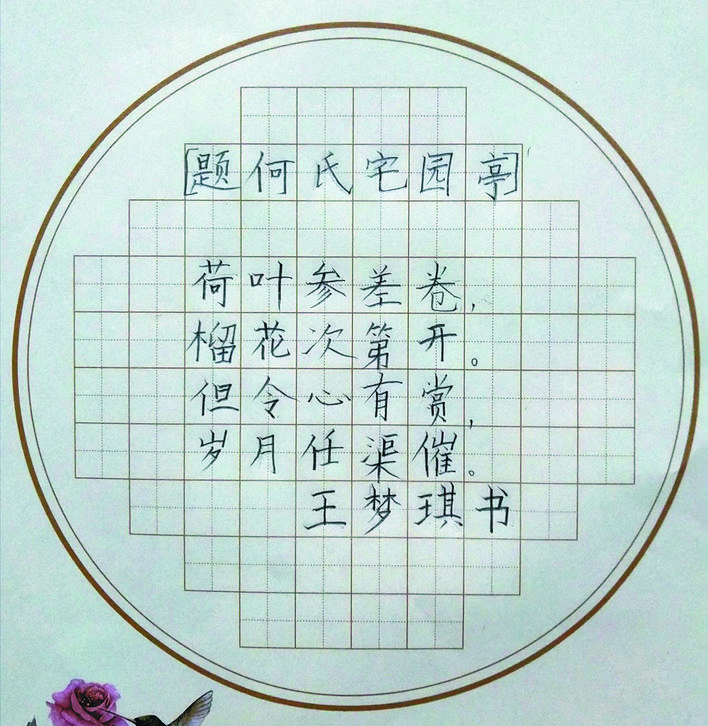 [题何氏宅园亭]
荷叶参差卷，
榴花次第开。
但令心有赏，
岁月任渠催。
王梦琪书